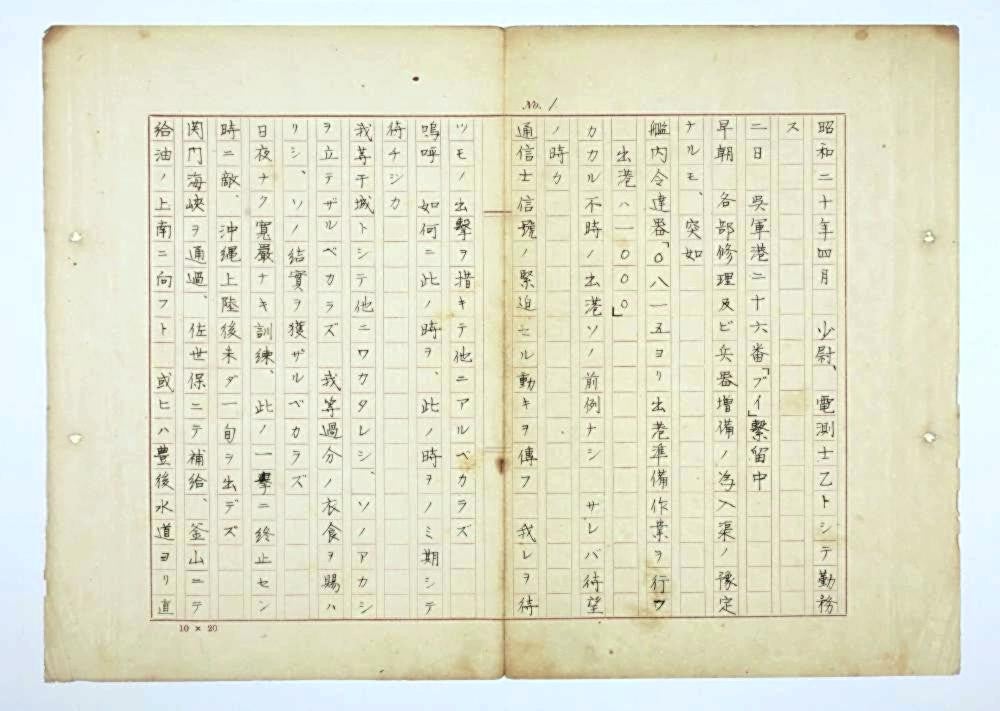 No. 1
昭和二十年四月　少尉、電測士乙トシテ勤務
ス
二日　呉軍港二十六番「ブイ」繋留中
早朝　各部修理及ビ兵器増備ノ為入渠ノ豫定
ナルモ、突如
艦内令達器「〇八一五ヨリ出港準備作業ヲ行フ
出港ハ一〇〇〇」
カカル不時ノ出港ソノ前例ナシ　サレバ待望
ノ時カ
通信士信號ノ緊迫セル動キヲ傳フ　我レヲ待
ツモノ出撃ヲ措キテ他ニアルベカラズ
嗚呼　如何ニ此ノ時ヲ、此ノ時ヲノミ期シテ
待チシカ
我等干城トシテ他ニワカタレシ、ソノアカシ
ヲ立テザルベカラズ　我等過分ノ衣食ヲ賜ハ
リシ、ソノ結實ヲ獲ザルベカラズ
日夜ナク寛嚴ナキ訓練、此ノ一擧ニ終止セン
時ニ敵、沖縄上陸後未ダ一旬ヲ出デズ
関門海峡ヲ通過、佐世保ニテ補給、釜山ニテ
給油ノ上南ニ向フト　或ヒハ豊後水道ヨリ直
10 × 20